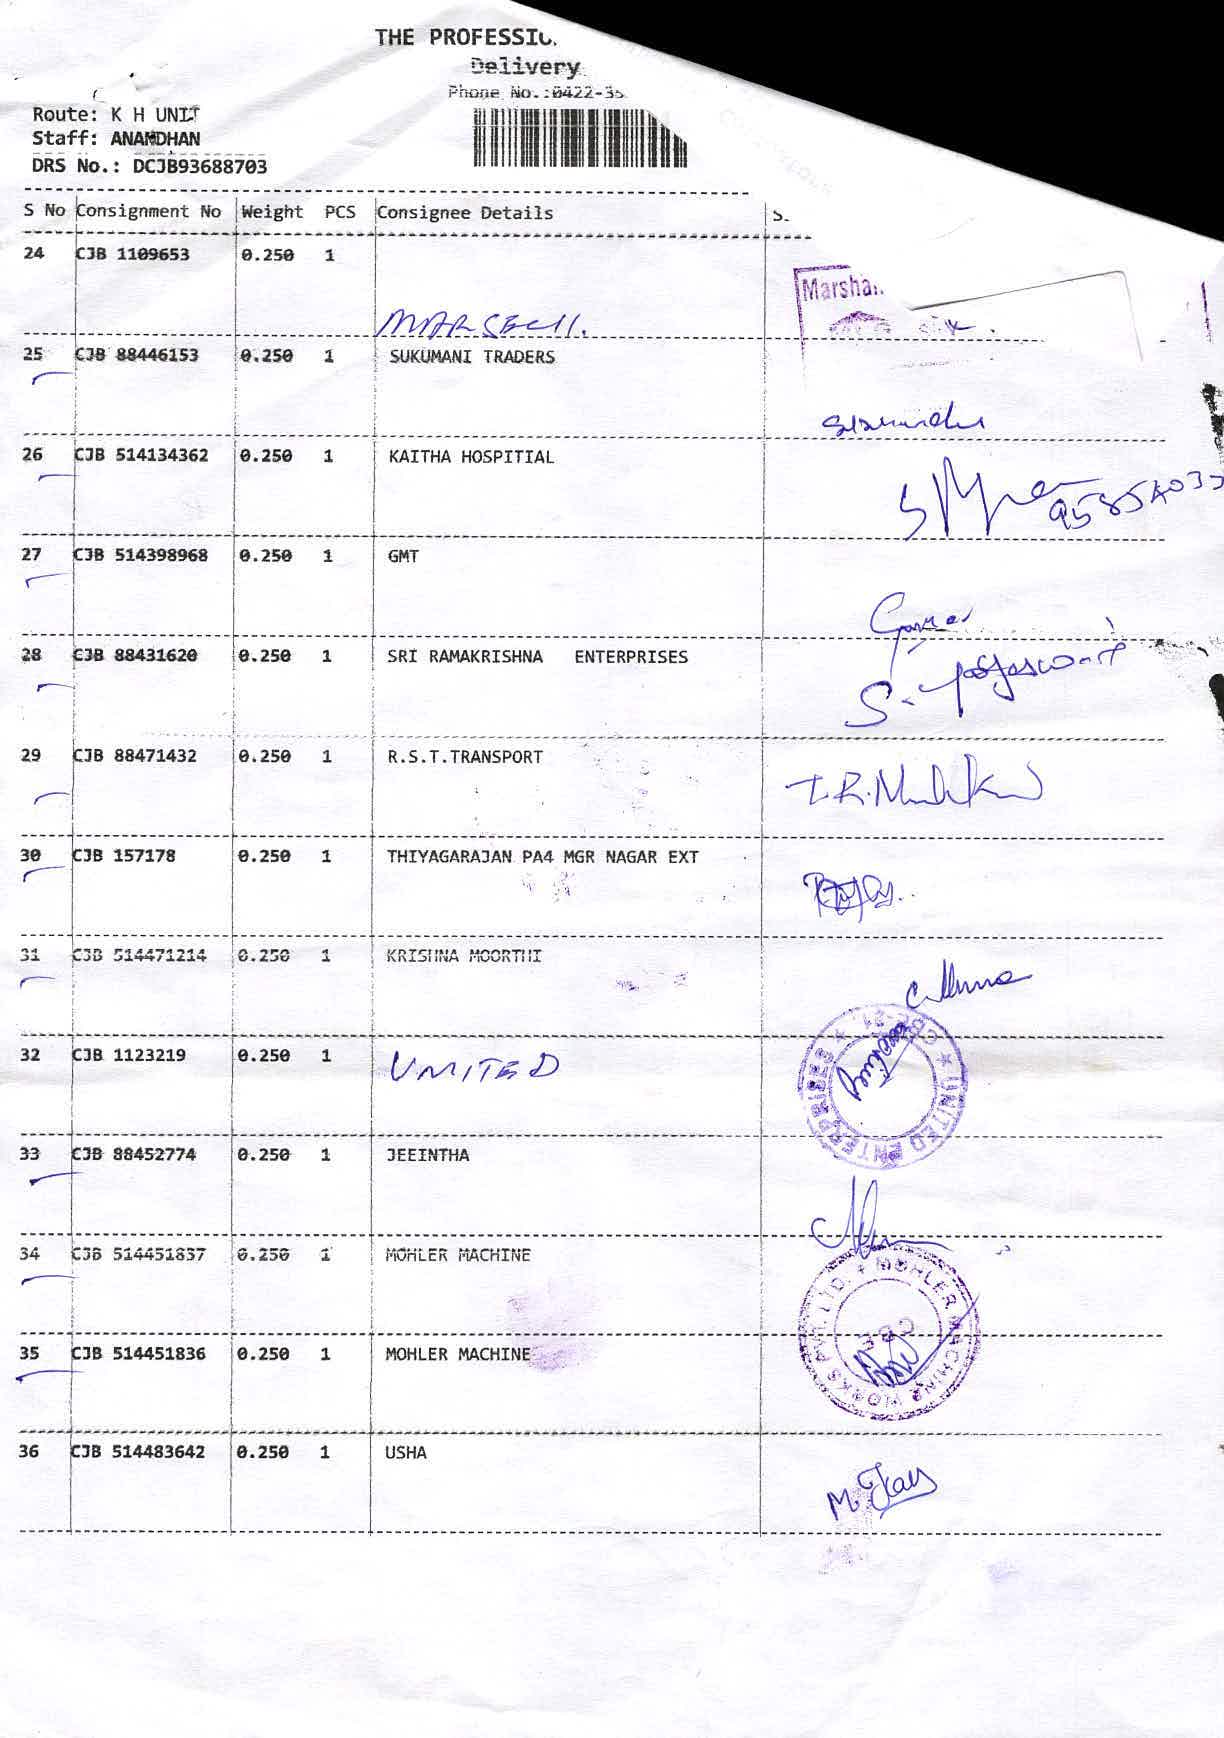 THE PROFESSIO
Delivery
Phone No.:0422-35
Route: K H UNIT
Staff: ANANDHAN
DRS No.: DCJB93688703
S No Consignment No Weight PCS Consignee Details S.
24 CJB 1109653 0.250 1
Marshal
MARSECH.
25 CJB 88446153 0.250 1 SUKUMANI TRADERS
26 CJB 514134362 0.250 1 KAITHA HOSPITIAL
27 CJB 514398968 0.250 1 GMT
28 CJB 88431620 0.250 1 SRI RAMAKRISHNA ENTERPRISES
29 CJB 88471432 0.250 1 R.S.T.TRANSPORT
30 CJB 157178 0.250 1 THIYAGARAJAN PA4 MGR NAGAR EXT
31 CJB 514471214 0.250 1 KRISHNA MOORTHI
32 CJB 1123219 0.250 1 UNITED
★ UNITED ENTERPRISES ★ CBE-21.
33 CJB 88452774 0.250 1 JEEINTHA
34 CJB 514451837 0.250 1 MOHLER MACHINE
★ MOHLER MACHINE WORKS PVT. LTD. CBE
35 CJB 514451836 0.250 1 MOHLER MACHINE
36 CJB 514483642 0.250 1 USHA